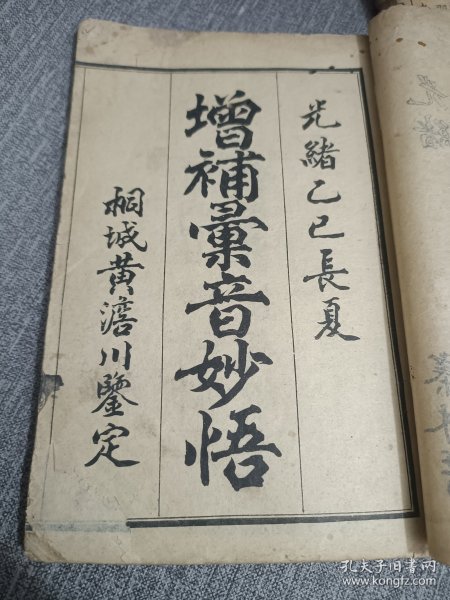 光緒乙巳長夏
增補彙音妙悟
桐城黃澹川鑒定
孔夫子旧书网
www.kongfz.com